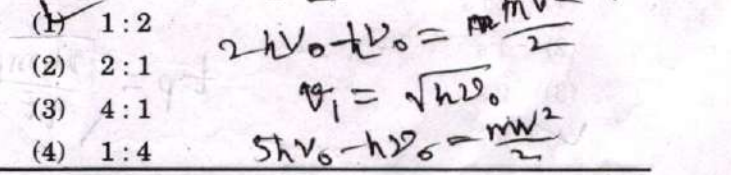 (1) 1 : 2
(2) 2 : 1
(3) 4 : 1
(4) 1 : 4
2hν₀ - hν₀ = mv²/2
v₁ = √hν₀
5hν₀ - hν₀ = mv²/2